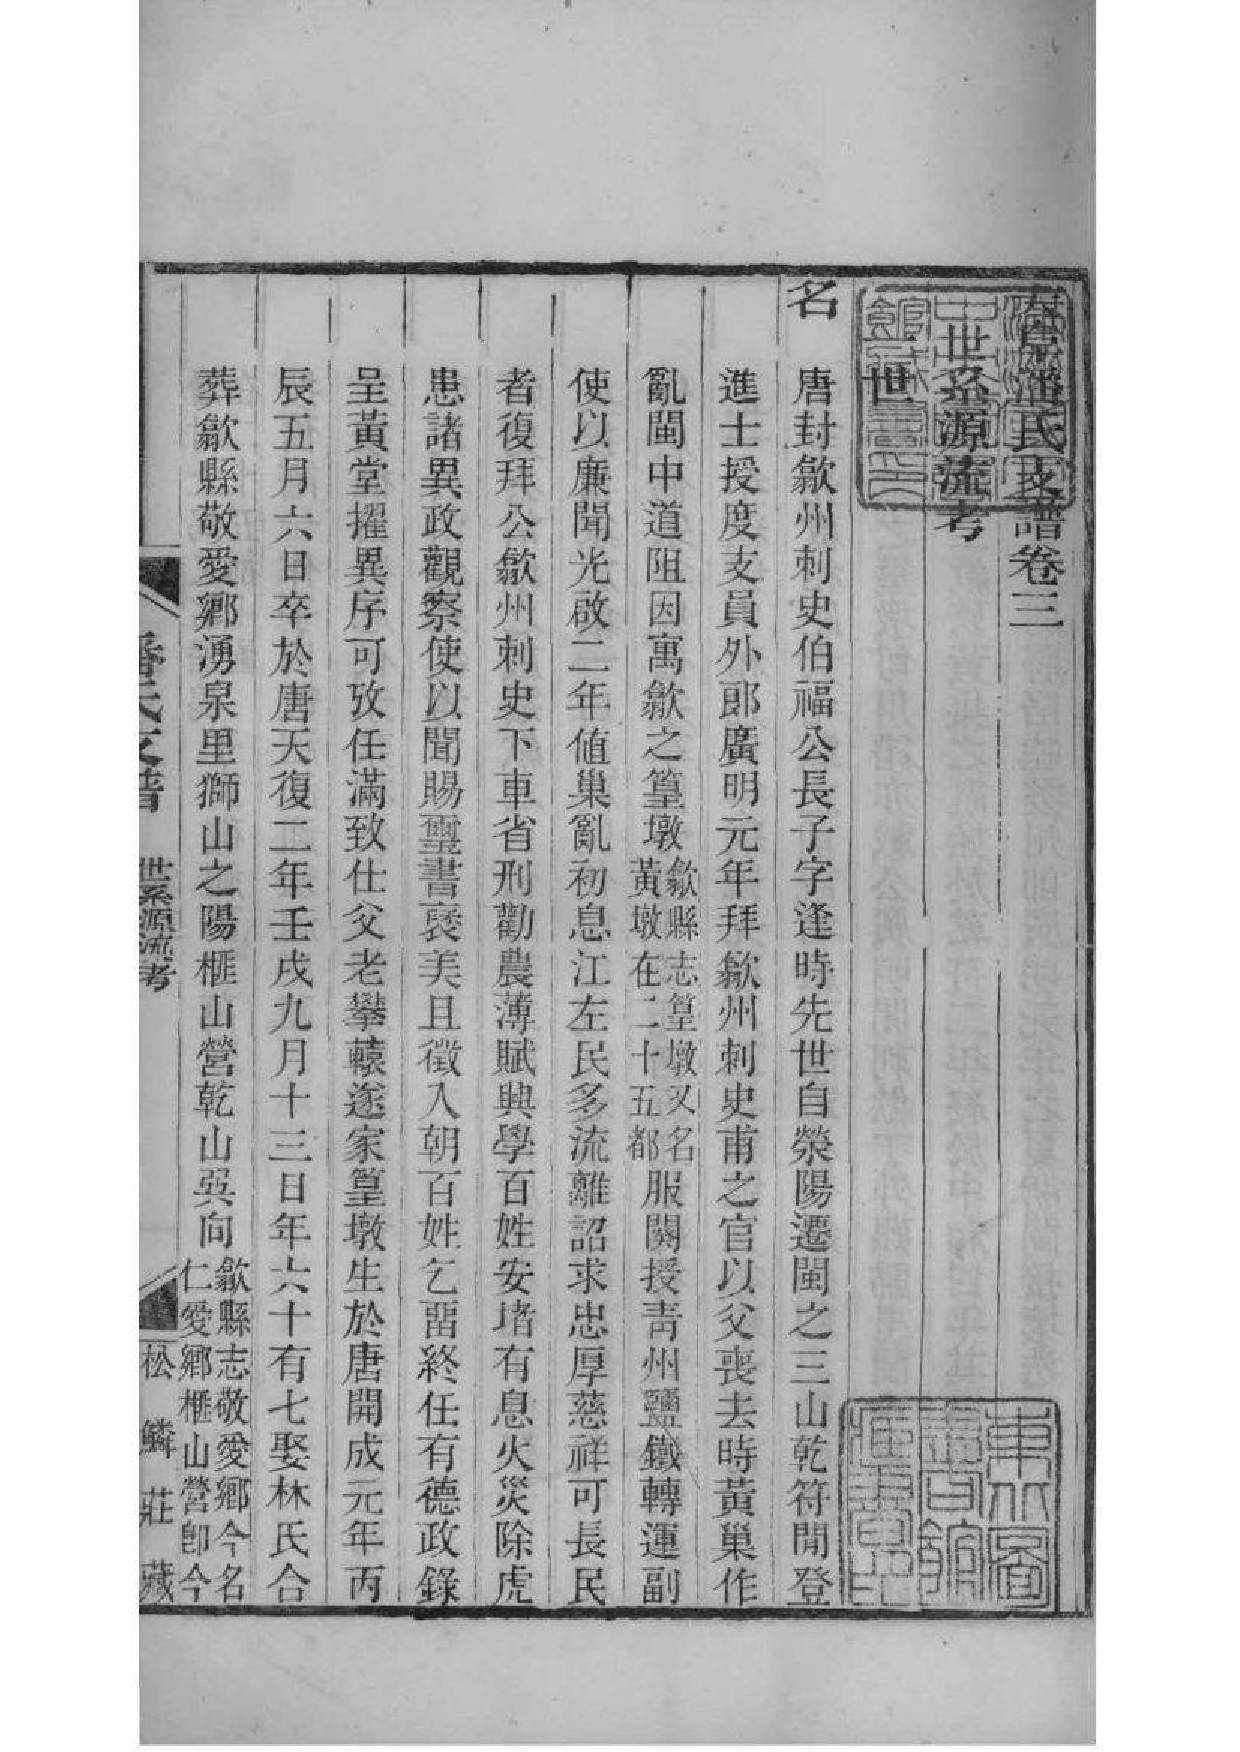 大阜潘氏支譜卷三
世系源流考
世
名
唐封歙州刺史伯福公長子字逢時先世自滎陽遷閩之三山乾符間登
進士授度支員外郎廣明元年拜歙州刺史甫之官以父喪去時黃巢作
亂閩中道阻因寓歙之篁墩歙縣志篁墩又名黃墩在二十五都服闋授青州鹽鐵轉運副
使以廉聞光啟二年值巢亂初息江左民多流離詔求忠厚慈祥可長民
者復拜公歙州刺史下車省刑勸農薄賦興學百姓安堵有息火災除虎
患諸異政觀察使以聞賜璽書襃美且徵入朝百姓乞畱終任有德政錄
呈黃堂擢異序可攷任滿致仕父老攀轅遂家篁墩生於唐開成元年丙
辰五月六日卒於唐天復二年壬戌九月十三日年六十有七娶林氏合
葬歙縣敬愛鄉湧泉里獅山之陽榧山營乾山巽向歙縣志敬愛鄉今名仁愛鄉榧山營卽今
潘氏支譜
世系源流考
松鱗莊藏